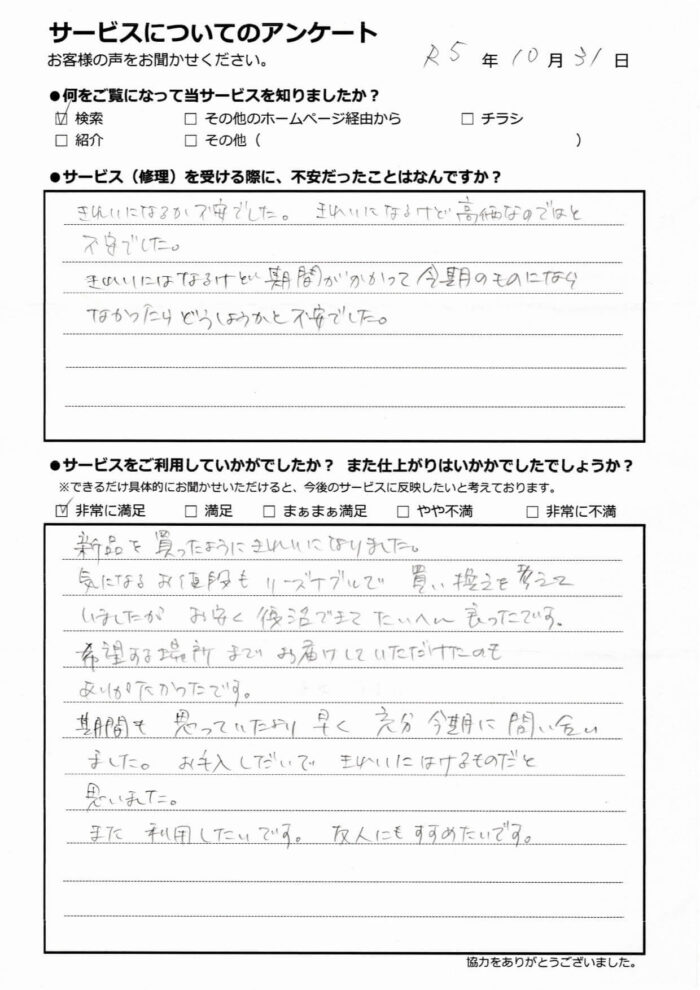 サービスについてのアンケート
お客様の声をお聞かせください。
R5 年 10 月 31 日
●何をご覧になって当サービスを知りましたか？
☑ 検索 □ その他のホームページ経由から □ チラシ
□ 紹介 □ その他（ ）
●サービス（修理）を受ける際に、不安だったことはなんですか？
きれいになるか不安でした。 きれいになるけど高価なのではと
不安でした。
きれいにはなるけど期間がかかって今期のものになら
なかったらどうしようかと不安でした。
●サービスをご利用していかがでしたか？ また仕上がりはいかかでしたでしょうか？
※できるだけ具体的にお聞かせいただけると、今後のサービスに反映したいと考えております。
☑ 非常に満足 □ 満足 □ まぁまぁ満足 □ やや不満 □ 非常に不満
新品を買ったようにきれいになりました。
気になるお値段もリーズナブルで 買い換えを考えて
いましたが お安く復活できて たいへん良ったです。
希望する場所までお届けしていただけたのも
ありがたかったです。
期間も 思っていたより早く 充分今期に間い合い
ました。 お手入しだいで きれいにはけるものだと
思いました。
また 利用したいです。 友人にもすすめたいです。
協力をありがとうございました。